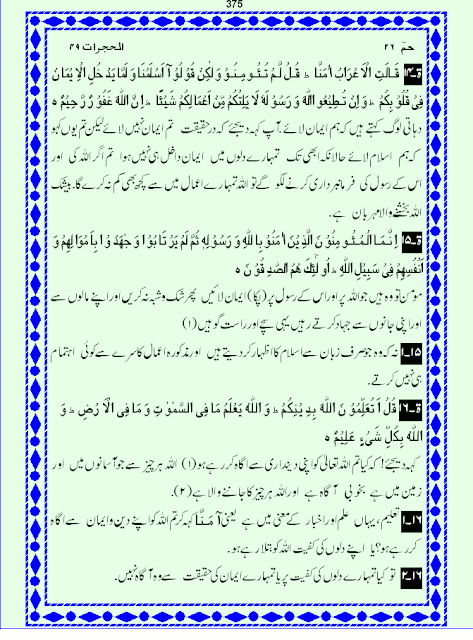 375
حمٓ ۲۶
الحجرات ۴۹
ق۔۱۴ قَالَتِ الْاَعْرَابُ اٰمَنَّا ؕ قُلْ لَّمْ تُؤْمِنُوْ وَلٰكِنْ قُوْ لُوْٓ ا اَسْلَمْنَا وَلَمَّا يَدْ خُلِ الْاِ يْمَانُ
فِىْ قُلُوْ بِكُمْ ؕ وَاِنْ تُطِيْعُو اللّٰهَ وَرَسُوْ لَهٗ لَا يَلِتْكُمْ مِّنْ اَعْمَالِكُمْ شَيْئًا ؕ اِنَّ اللّٰهَ غَفُوْرٌ رَّحِيْمٌ ه
دیہاتی لوگ کہتے ہیں کہ ہم ایمان لائے، آپ کہہ دیجئے کہ درحقیقت تم ایمان نہیں لائے لیکن تم یوں کہو
کہ ہم اسلام لائے حالانکہ ابھی تک تمہارے دلوں میں ایمان داخل ہی نہیں ہوا تم اگر اللہ کی اور
اس کے رسول کی فرمانبرداری کرنے لگو گے تو اللہ تمہارے اعمال میں سے کچھ بھی کم نہ کرے گا۔ بیشک
اللہ بخشنے والا مہربان ہے۔
ق۔۱۵ اِنَّمَا الْمُؤْ مِنُوْ نَ الَّذِيْنَ اٰمَنُوْ بِا للّٰهِ وَرَسُوْ لِهٖ ثُمَّ لَمْ يَرْ تَا بُوْ ا وَجٰهَدُ وْ ا بِاَ مْوَ الِهِمْ وَ
اَنْفُسِهِمْ فِىْ سَبِيْلِ اللّٰهِ ؕ اُو لٰٓئِكَ هُمُ الصّٰدِ قُوْ نَ ه
مومن تو وہ ہیں جو اللہ پر اور اس کے رسول پر (پکا) ایمان لائیں پھر شک و شبہ نہ کریں اور اپنے مالوں سے
اور اپنی جانوں سے جہاد کرتے رہیں یہی سچے اور راست گو ہیں (۱)
۱۵۔۱ نہ کہ وہ جو صرف زبان سے اسلام کا اظہار کر دیتے ہیں اور مذکورہ اعمال کا سرے سے کوئی اہتمام
ہی نہیں کرتے۔
ق۔۱۶ قُلْ اَ تُعَلِّمُوْ نَ اللّٰهَ بِدِ يْنِكُمْ ؕ وَ اللّٰهُ يَعْلَمُ مَا فِى السَّمٰوٰ تِ وَ مَا فِى الْاَ رْ ضِ ؕ وَ
اللّٰهُ بِكُلِّ شَىْ ءٍ عَلِيْمٌ ه
کہہ دیجئے! کہ کیا تم اللہ تعالیٰ کو اپنی دینداری سے آگاہ کر رہے ہو (۱) اللہ ہر چیز سے جو آسمانوں میں اور
زمین میں ہے بخوبی آگاہ ہے اور اللہ ہر چیز کا جاننے والا ہے (۲)۔
۱۶۔۱ تعلیم، یہاں علم اور اخبار کے معنی میں ہے یعنی آمَنَّا کہہ کر تم اللہ کو اپنے دین و ایمان سے آگاہ
کر رہے ہو؟ یا اپنے دلوں کی کیفیت اللہ کو بتلا رہے ہو۔
۱۶۔۲ تو کیا تمہارے دلوں کی کیفیت پر یا تمہارے ایمان کی حقیقت سے وہ آگاہ نہیں۔